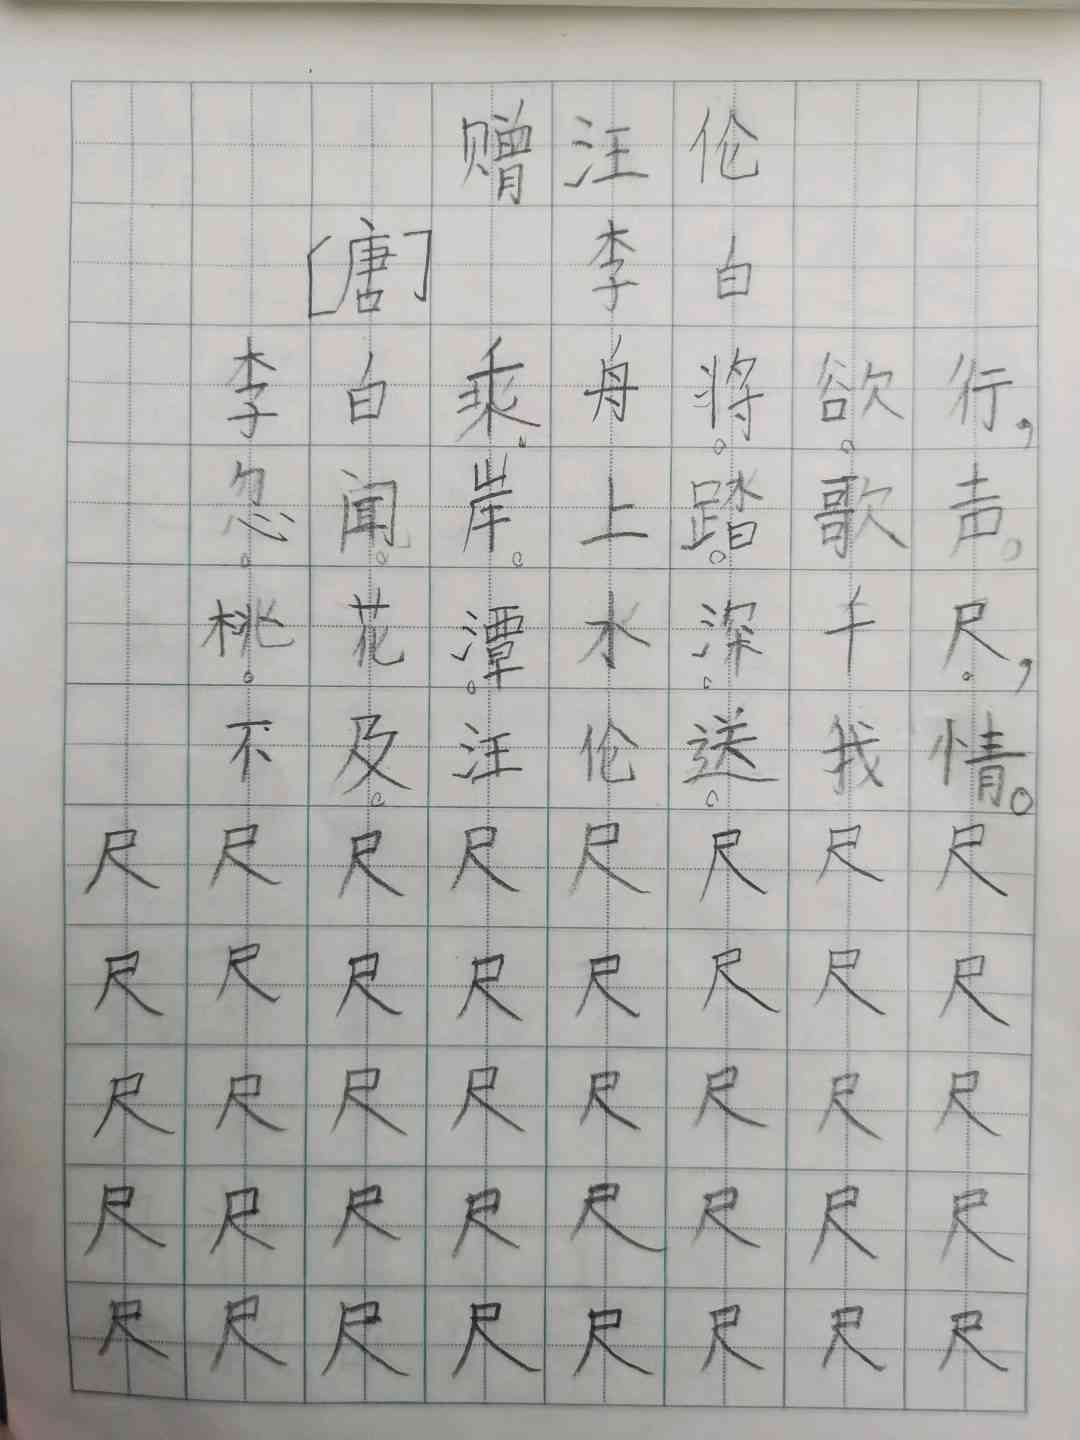 赠汪伦
[唐] 李白
李白乘舟将欲行，
忽闻岸上踏歌声。
桃花潭水深千尺，
不及汪伦送我情。
尺尺尺尺尺尺尺尺
尺尺尺尺尺尺尺尺
尺尺尺尺尺尺尺尺
尺尺尺尺尺尺尺尺
尺尺尺尺尺尺尺尺